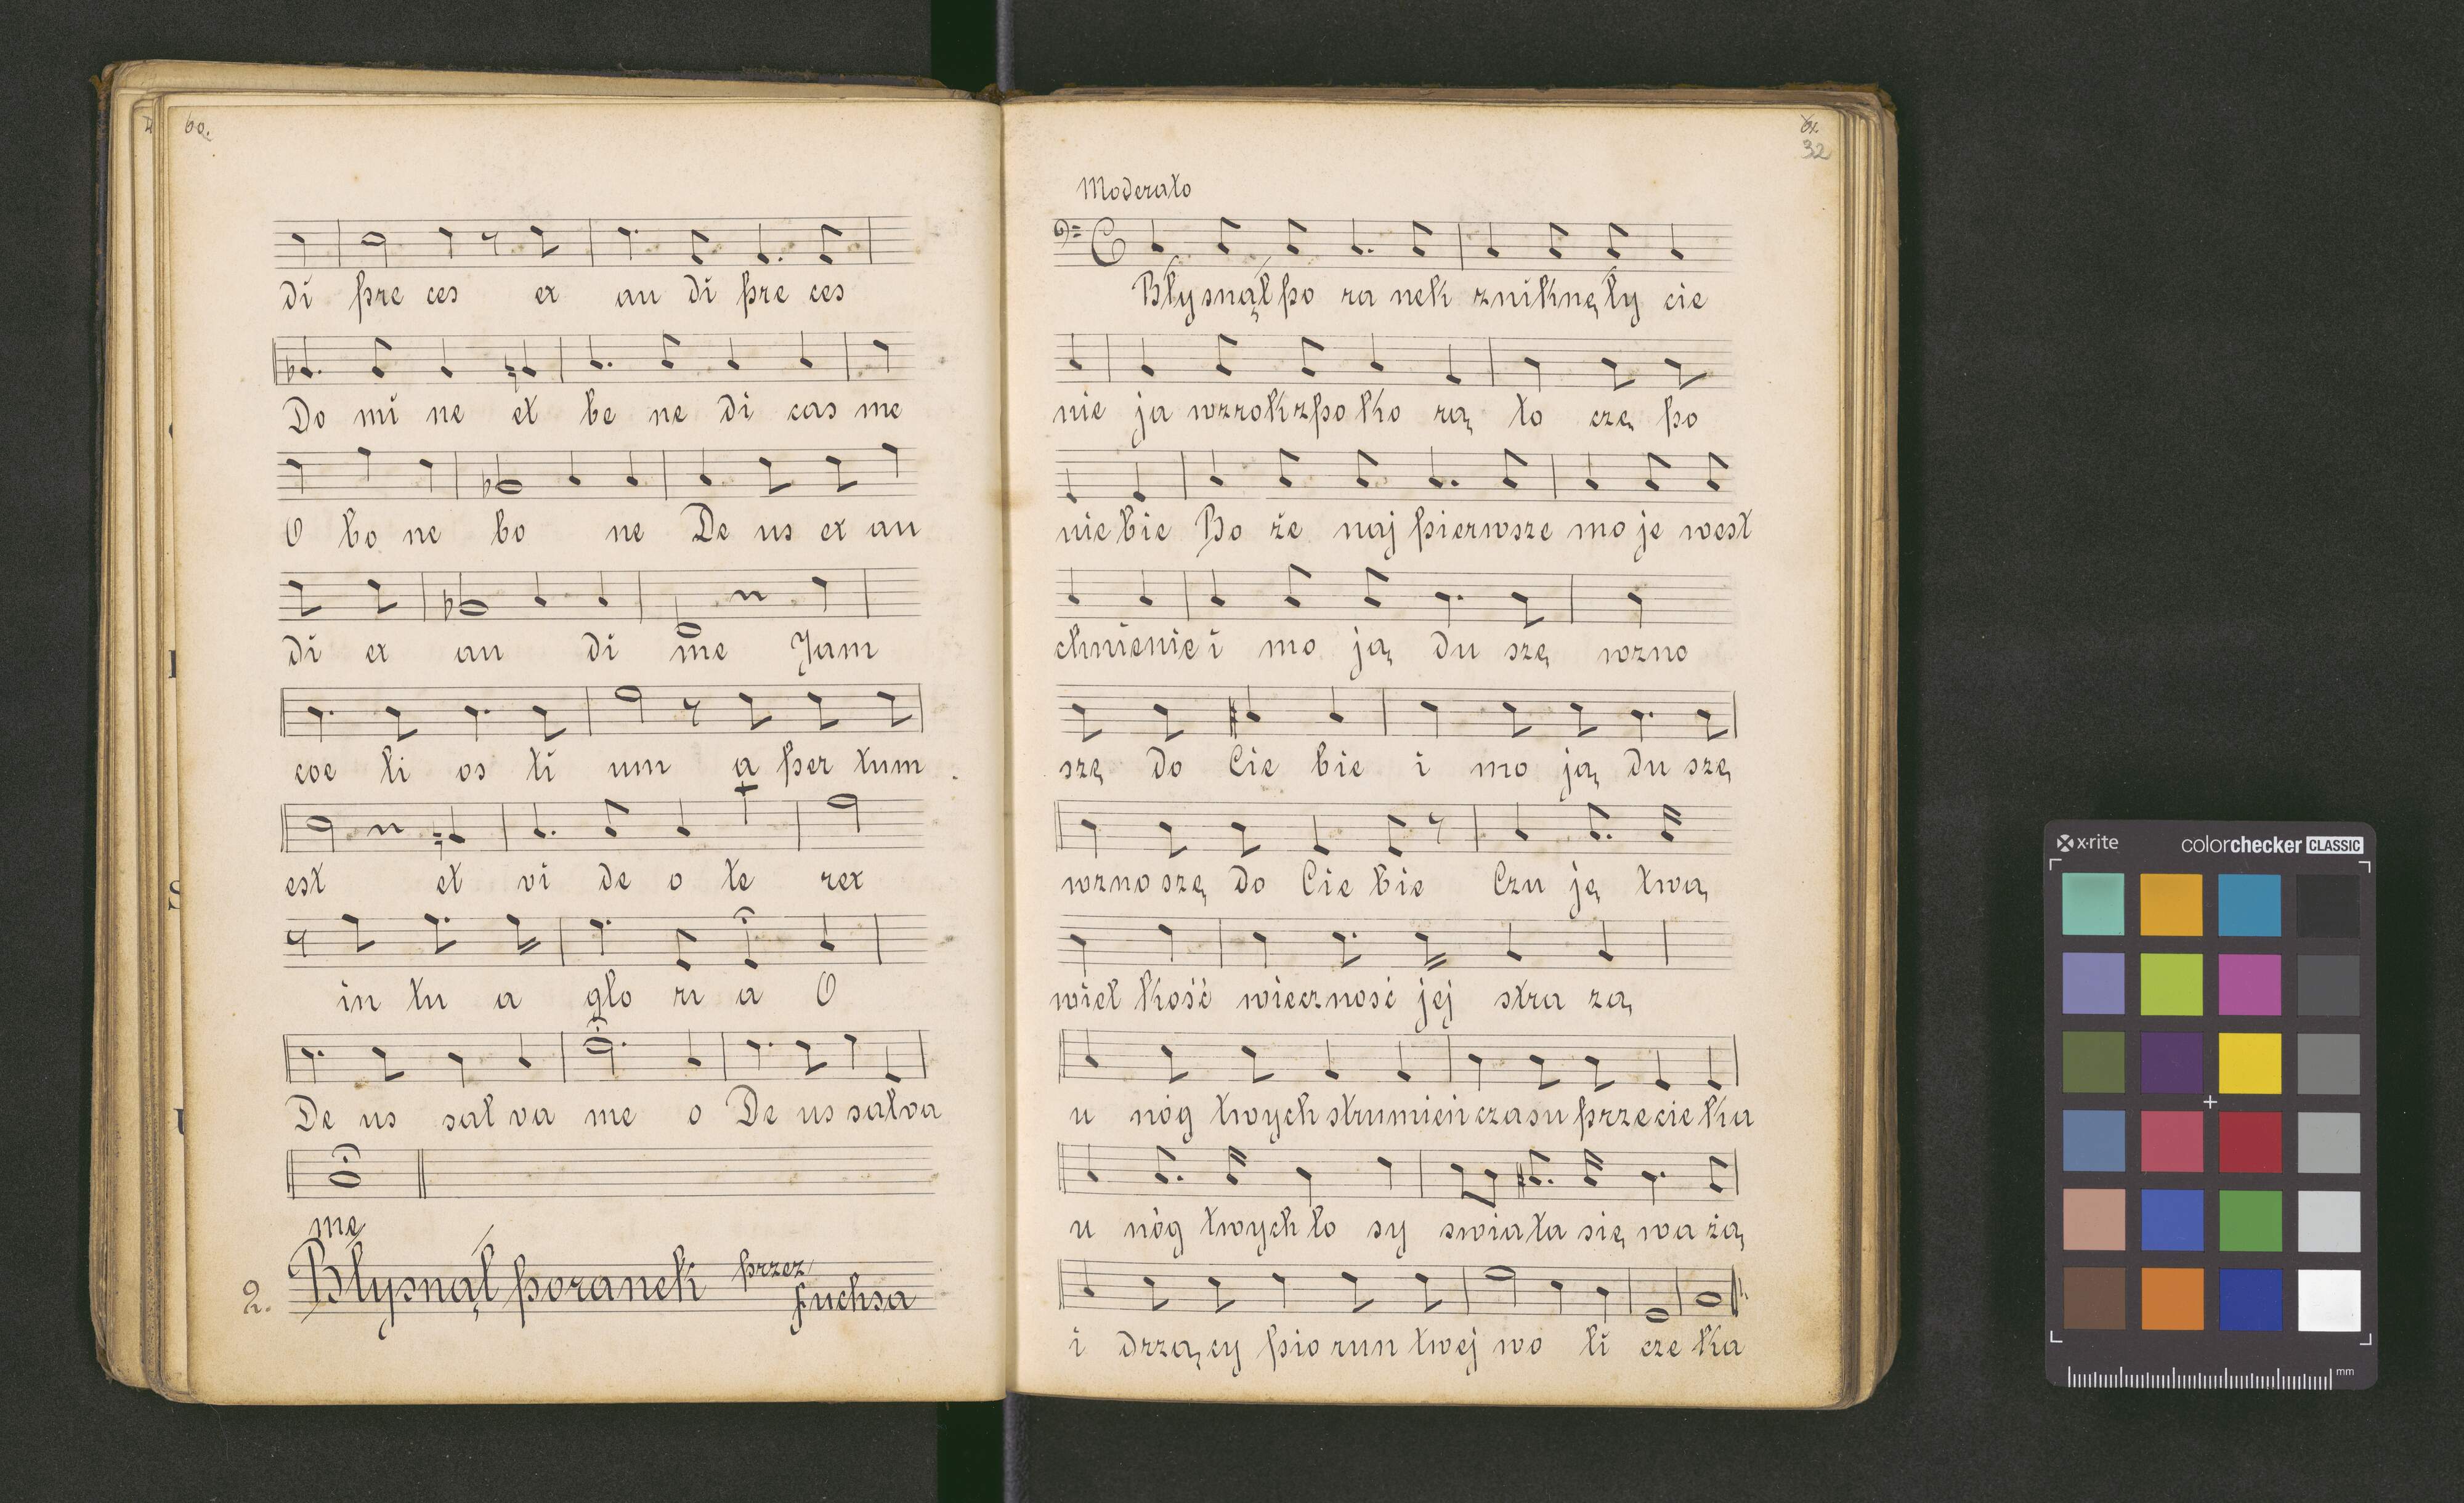 60.
Di pre ces ex au di pre ces
Do mi ne et be ne di cas me
O bo ne bo ne De us ex au
di ex au di me Jam
coe li os ti um a per tum
est et vi de o te rex
in tu a glo ri a O
De us sal va me o De us salva
me
2. Błysnął poranek przez
Fuchsa
61.
32
Moderato
Błysnął po ra nek zniknęły cie
nie ja wzrok z po ko rą to czę po
nie bie Bo że naj pierwsze mo je west
chnienie i mo ją du szę wzno
szę do Cie bie i mo ją du szę
wzno szę do Cie bie Czu ję twą
wiel kość wieczność jej stra żą
u nóg twych strumień czasu przecie ka
u nóg twych lo sy swiata się wa żą
i drzący pio run twej wo li cze ka
x-rite
colorchecker CLASSIC
mm